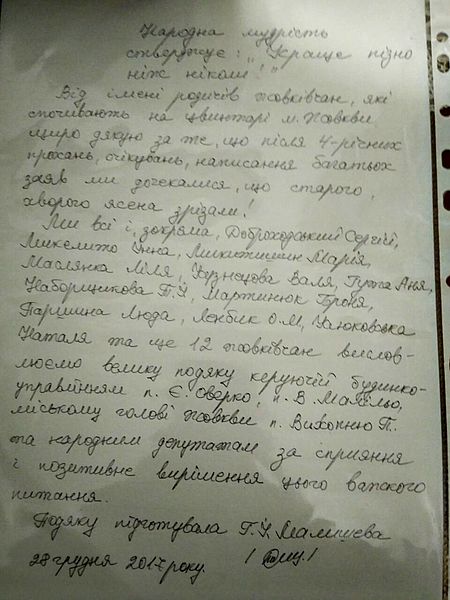 Народна мудрість
стверджує: „Краще пізно
ніж ніколи!"
Від імені родичів жовківчан, які
спочивають на цвинтарі м. Жовкви
щиро дякую за те, що після 4-річних
прохань, очікувань, написання багатьох
заяв ми дочекалися, що старого,
хворого ясена зрізали!
Ми всі і, зокрема, Доброходський Сергій,
Микелито Інна, Микитишин Марія,
Маслянка Ліля, Кузнєцова Валя, Аня,
Наборщикова Мартинюк Броня,
Паршина Люда, Ленбик О.М,
Наталя та ще 12 жовківчан вислов-
люємо велику подяку керуючій будинко-
управлінням п. Є. Оверко, п. В.
міському голові Жовкви п. Вихопню П.
та народним депутатам за сприяння
і позитивне вирішення цього важкого
питання.
Подяку підготувала
28 грудня 2017 року.